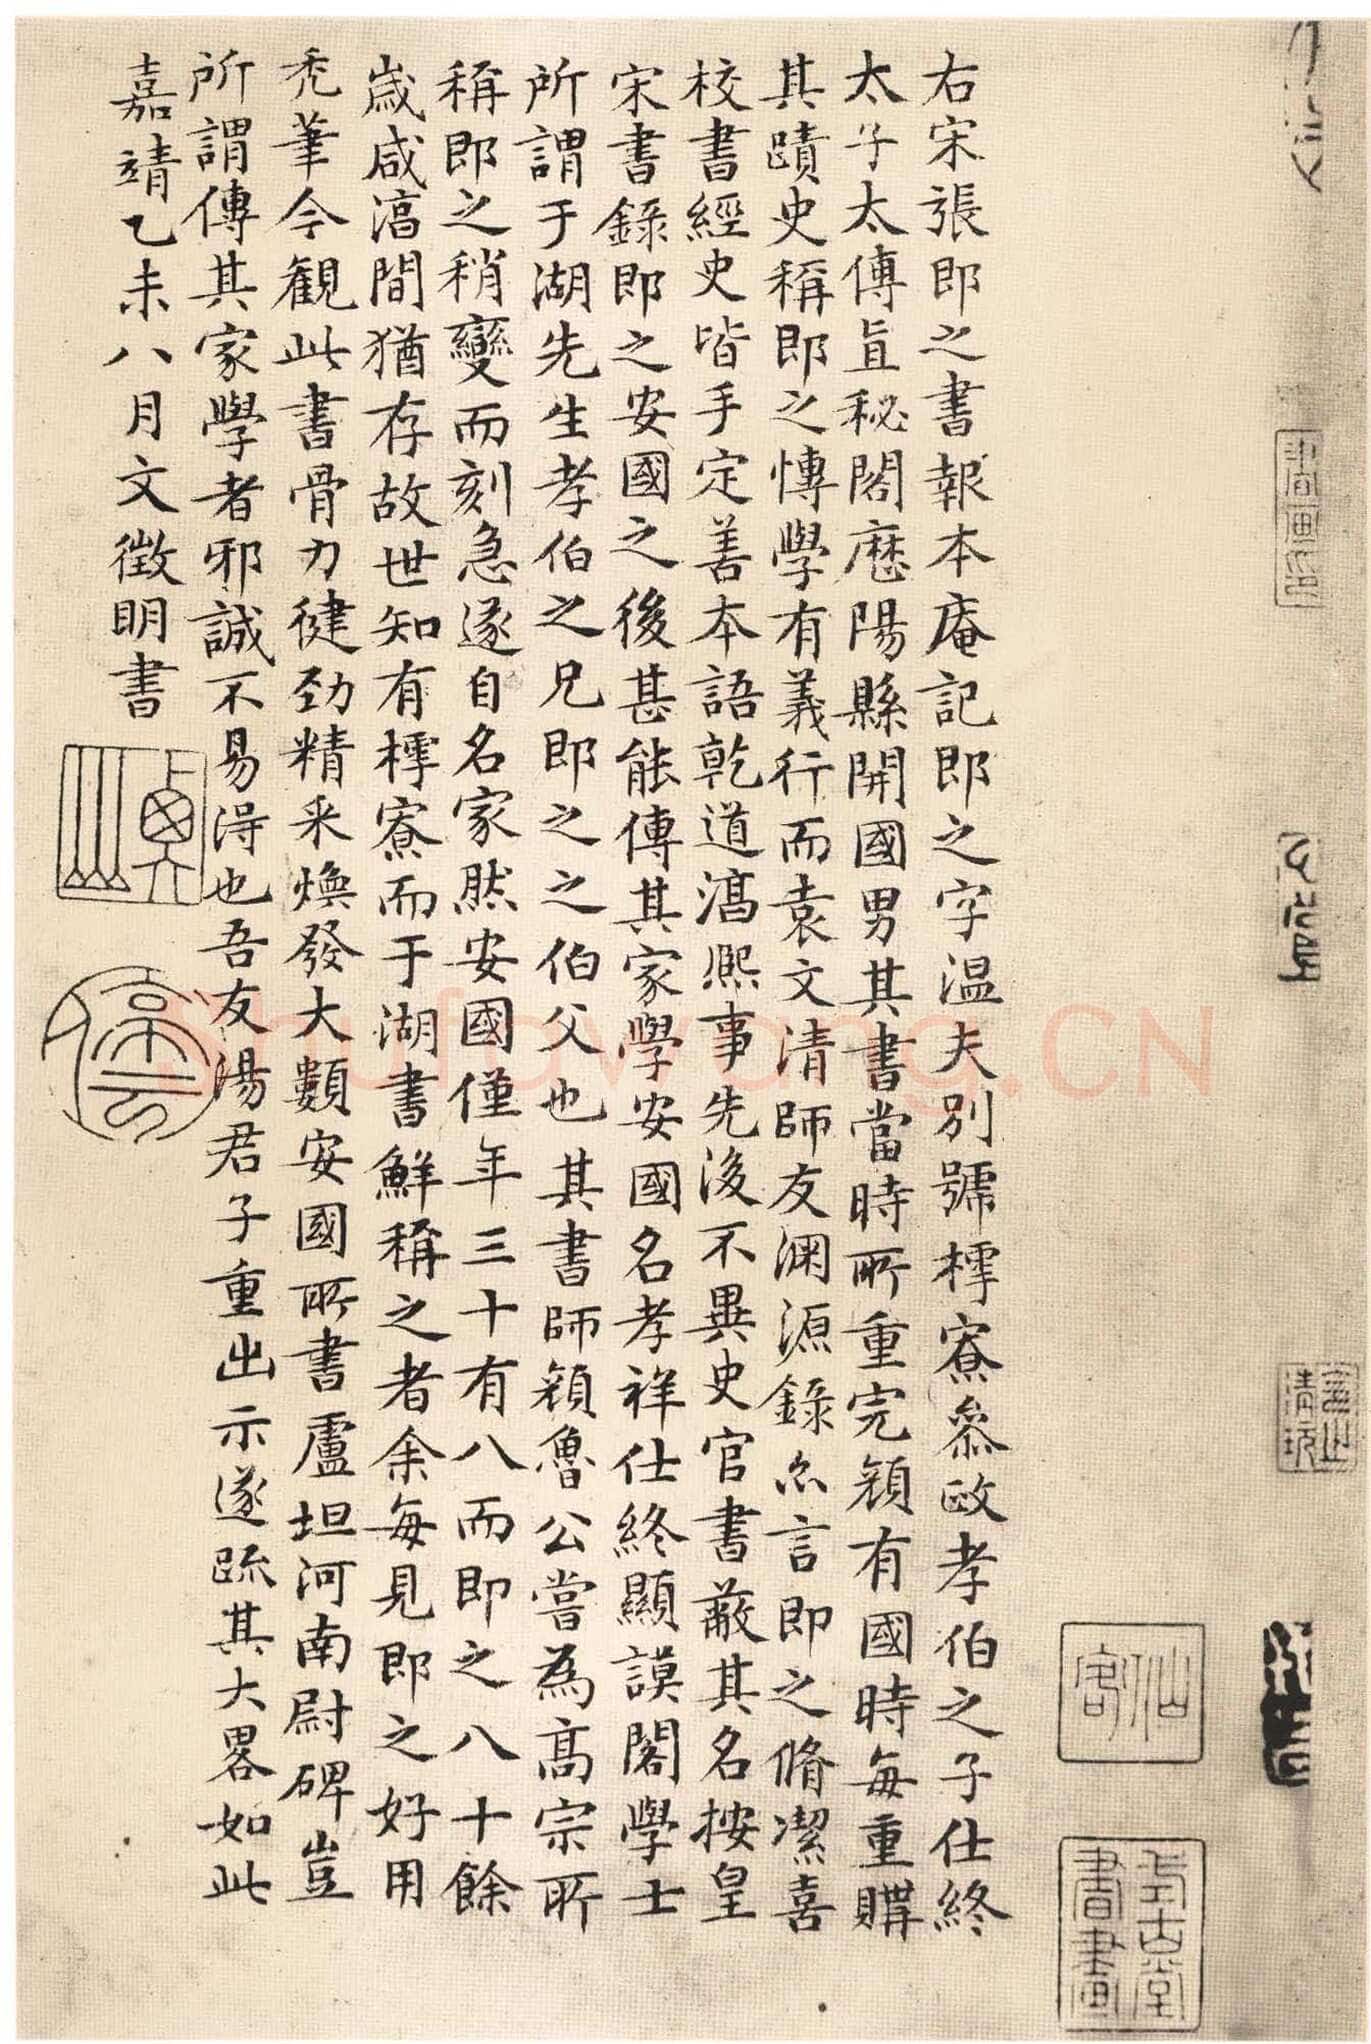 右宋張即之書報本庵記即之字温夫別號樗寮叅政孝伯之子仕終
太子太傅直秘閣歷陽縣開國男其書當時所重完顏有國時每重購
其蹟史稱即之博學有義行而袁文清師友淵源錄亦言即之脩潔喜
校書經史皆手定善本語乾道淳熙事先後不異史官書蔽其名按皇
宋書錄即之安國之後甚能傳其家學安國名孝祥仕終顯謨閣學士
所謂于湖先生孝伯之兄即之之伯父也其書師顏魯公嘗為髙宗所
稱即之稍變而刻急遂自名家然安國僅年三十有八而即之八十餘
歲咸淳間猶存故世知有樗寮而于湖書鮮稱之者余每見即之好用
禿筆今觀此書骨力健劲精采煥發大類安國所書盧坦河南尉碑豈
所謂傳其家學者邪誠不易得也吾友湯君子重出示遂䟽其大畧如此
嘉靖乙未八月文徵明書
停雲
仙客
書畫
清玩
書画印
shufawang.CN